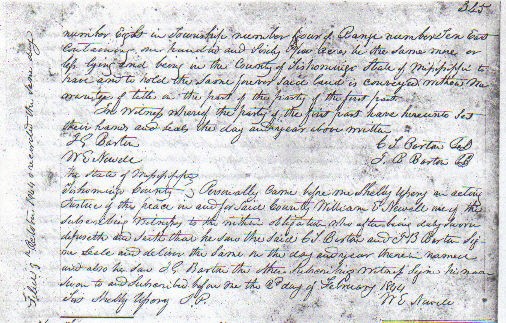 325
number Eight in Township number four of Range number Ten East
Containing one hundred and Sixty four Acres be the same more or
less lying and being in the County of Tishomingo State of Mississippi to
have and to hold the same forever Said land is conveyed without
warranty of title on the part of the party of the first part
In Witness whereof the party of the first part have hereunto Set
their hands and seals the day and year above written
J G Barton C S Barton
W E Newell J B Barton
The State of Mississippi
Tishomingo County Personally Came before me Shelby Upory an acting
Justice of the peace in and for Said County William E Newell one of the
subscribing Witnesses to the within obligation who after being duly sworn
deposeth and saith that he saw the said C S Barton and J B Barton Sign
Seale and deliver the same on the day and year therein named
and also he saw J G Barton the other subscribing witness sign his name
Sworn to and Subscribed before me the day of February 1864
Shelby Upory J.P. W E Newell
October 1864 & recorded the same day